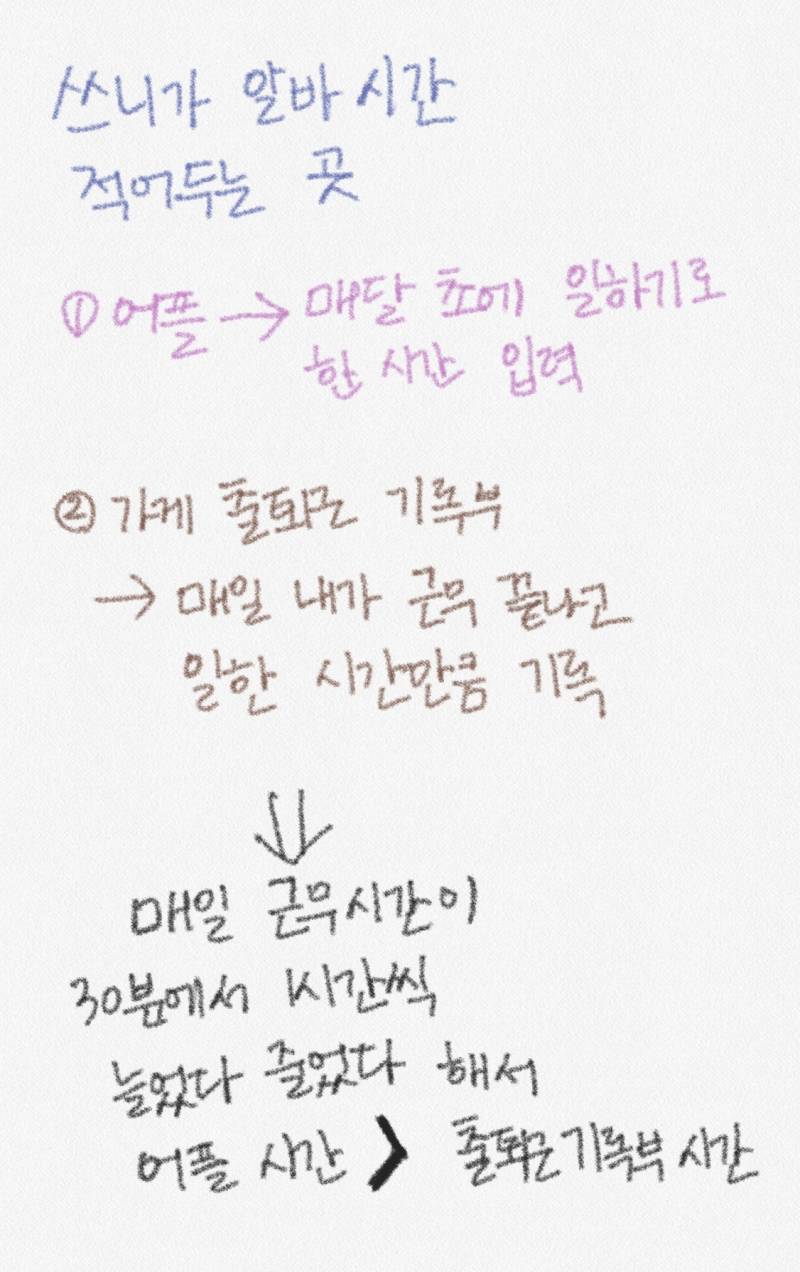 쓰니가 알바 시간
적어두는 곳
① 어플 → 매달 초에 일하기로
한 시간 입력
② 가게 출퇴근 기록부
→ 매일 내가 근무 끝나고
일한 시간만큼 기록
⇓
매일 근무시간이
30분에서 1시간씩
늘었다 줄었다 해서
어플 시간 > 출퇴근기록부 시간